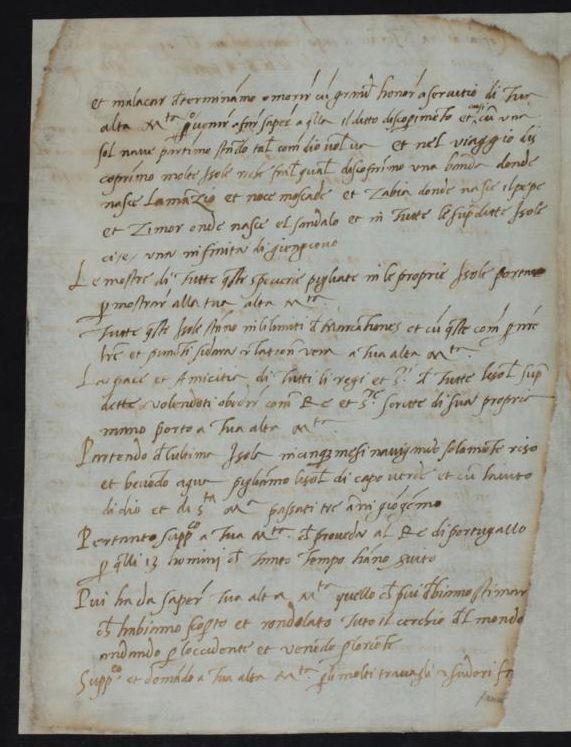 et malacar determinamo o morir cu grand honor a servitio di Tua
alta Mta per venir a far saper a qlla il ditto discoprimento et cusi cum una
sol nave partimo stando tal com dio vol va et nel viaggio dis
coprimo molte Isole riche fral qual discoprimo una banda donde
nasce La mazio et noce moscade et Zabia donde nasce il pepe
et Zimor onde nasce el sandalo et in Tutte le supdette Isole
ci e una infinita di giengiovo
Le mostre di Tutte qste speciarie pigliate in le proprie Isole portamo
p mostrar alla tua alta Mta
Tutte qste Isole stano in li limiti d marcationes et cu qste com p me
tre et punti si dara relation vera a Tua alta Mta
La pace et Amicitia di Tutti li regi et Sri d Tutte le sol sup
dette volendoti obedir com Re et Sre scritte di sua propria
mano porto a Tua alta Mta
Partendo d l ultima Isola in cinq mesi navigando solamente riso
et bevendo aqua pigliamo le sol di capo verde et cu haiuto
di dio et di Sta Ma passati tre anni giogemo
Pertanto suppco a Tua Mta ch proveda al Re di portugallo
p qlli 13 homini ch tanto Tempo hano servito
Piu ha da saper Tua alta Mta quello ch piu dobiamo stimar
ch habiamo scoperto et rondolato Tuto il cerchio del mondo
andando p loccidente et venendo p loriente
Suppco et domado a Tua alta Mta p li molti travagli e sudori